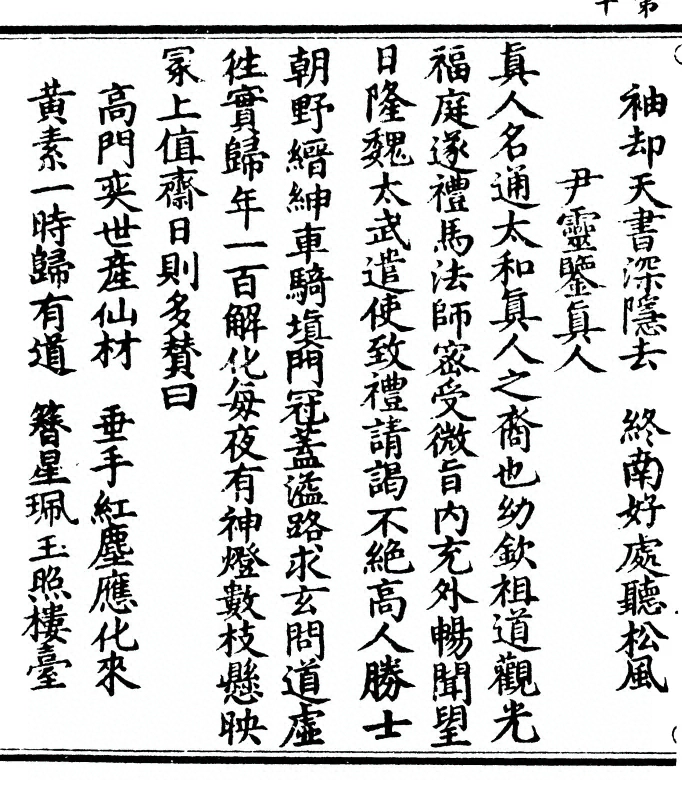 第十
袖却天書深隱去　終南好處聽松風
尹靈鑒真人
真人名通太和真人之裔也幼欽祖道觀光
福庭遂禮馬法師密受微旨内充外暢聞望
日隆魏太武遣使致禮請謁不絶高人勝士
朝野縉紳車騎塡門冠蓋溢路求玄問道虛
徃實歸年一百解化每夜有神燈數枝懸映
冢上值齋日則多賛曰
高門奕世産仙材　垂手紅塵應化來
黃素一時歸有道　簪星珮玉照樓臺